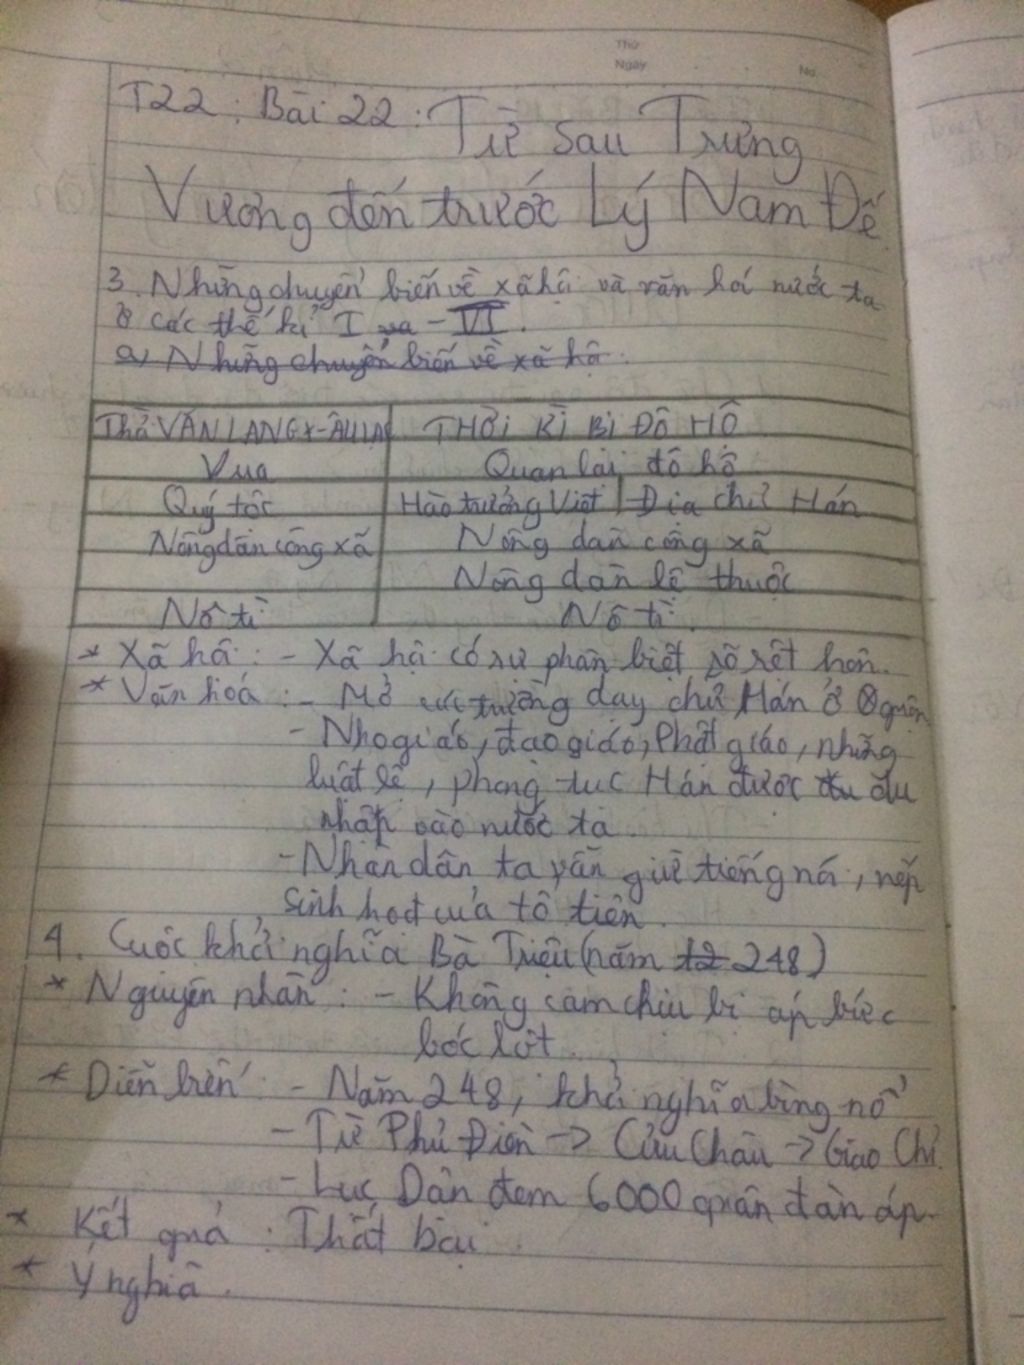 Thứ
Ngày
No.
T22: Bài 22: Từ sau Trưng
Vương đến trước Lý Nam Đế
3. Những chuyển biến về xã hội và văn hoá nước ta
ở các thế kỉ I - VI.
a, Những chuyển biến về xã hội.
VĂN LANG - ÂU LẠC THỜI KÌ BỊ ĐÔ HỘ
Vua Quan lại đô hộ
Quý tộc Hào trưởng Việt Địa chủ Hán
Nông dân công xã Nông dân công xã
Nông dân lệ thuộc
Nô tì Nô tì
* Xã hội: - Xã hội có sự phân biệt rõ rệt hơn.
* Văn hoá: - Mở trường dạy chữ Hán ở quận
- Nho giáo, đạo giáo, Phật giáo, những
luật lệ, phong tục Hán được du
nhập vào nước ta
- Nhân dân ta vẫn giữ tiếng nói, nếp
sinh hoạt của tổ tiên.
4. Cuộc khởi nghĩa Bà Triệu (năm 248)
* Nguyên nhân: - Không cam chịu bị áp bức
bóc lột.
* Diễn biến: - Năm 248, khởi nghĩa bùng nổ
- Từ Phú Điền -> Cửu Chân -> Giao Chỉ.
- Lục Dận đem 6000 quân đàn áp.
* Kết quả: Thất bại.
* Ý nghĩa.